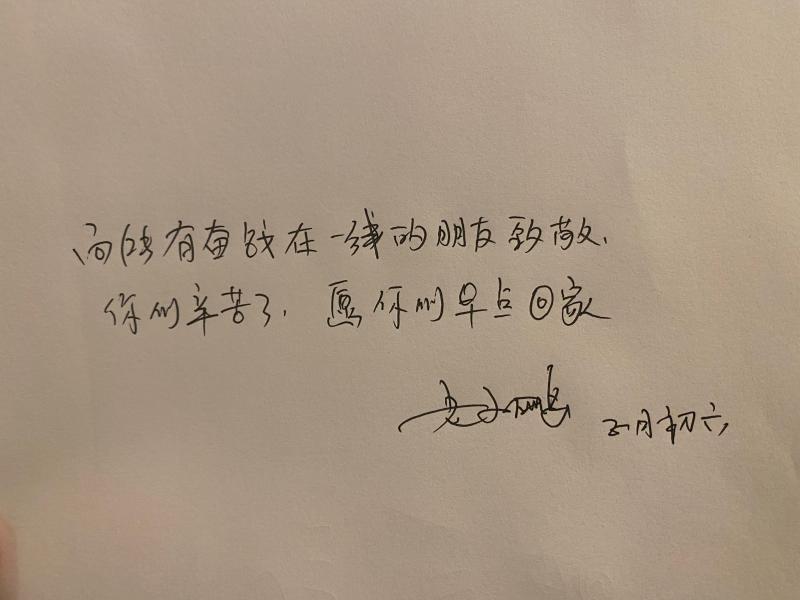 向所有奋战在一线的朋友致敬、
你们辛苦了，愿你们早点回家
正月初六